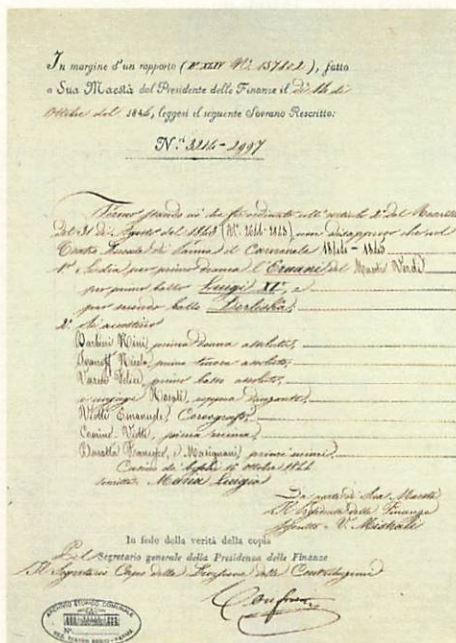 In margine d'un rapporto (N° XLIV N.° 15782), fatto
a Sua Maestà dal Presidente delle Finanze il dì 14 di
Ottobre del 1844, leggesi il seguente Sovrano Rescritto:
N.° 3244-2997
Fermo stando ciò che fu ordinato all'articolo 2° del Rescritto
del 31 di Agosto del 1843 non disapprovo che nel
Teatro Ducale di Parma il Carnevale 1844-1845
1° Si dia per primo dramma l'Ernani del Maestro Verdi
per primo ballo Luigi XI°, e
per secondo ballo
2° Si accettino
Barbieri Nini, prima donna assoluta,
Ivanoff Nicola, primo tenore assoluto,
Varesi Felice, primo basso assoluto,
i coniugi danzanti,
Viotti Emanuele, Coreografo,
Viotti, prima mima,
Baratti Francesco, e Masignani, primi mimi.
Casino de' Boschi 15 ottobre 1844
Maria Luigia
Da parte di Sua Maestà
Il Presidente delle Finanze
V. Mistrali
In fede della verità della copia
Pel Segretario generale della Presidenza delle Finanze
Il Segretario Capo della Divisione delle Contribuzioni
ARCHIVIO STORICO COMUNALE
N.
TEATRO REGIO - PARMA